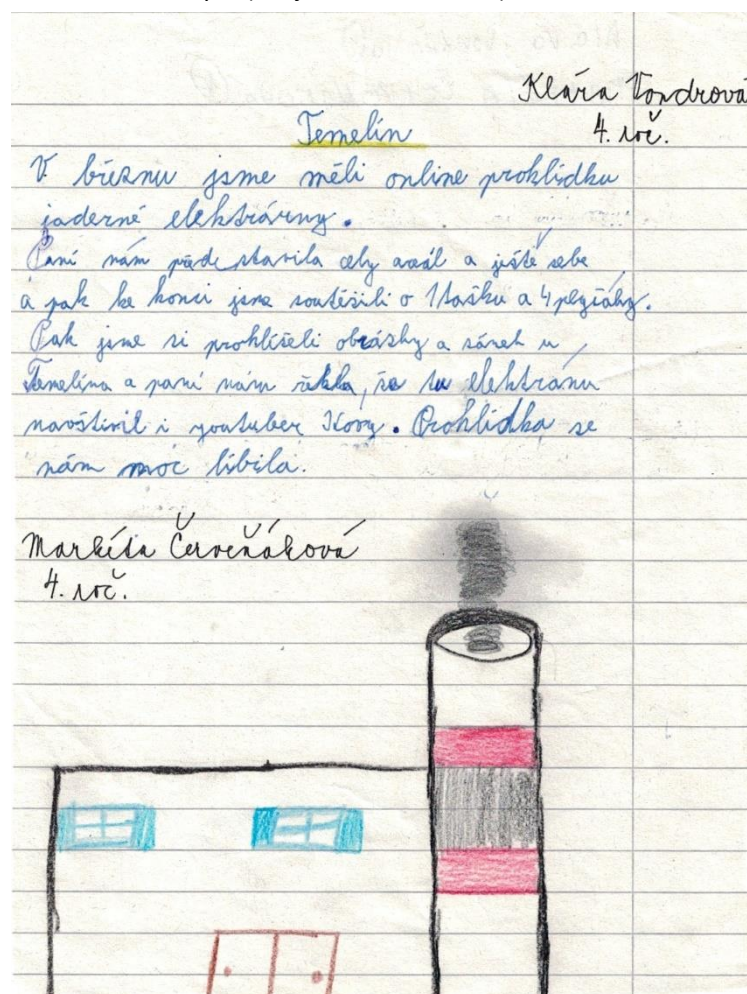 Klára Vondrová
4. roč.
Temelín
V březnu jsme měli online prohlídku
jaderné elektrárny.
Paní nám představila celý areál a ještě sebe
a pak ke konci jsme soutěžili o 1 tašku a 4
Pak jsme si prohlíželi obrázky a zámek u
Temelína a paní nám řekla, že tu elektránu
navštívil i youtuber Kovy. Prohlídka se
nám moc líbila.
Markéta Červeňáková
4. roč.